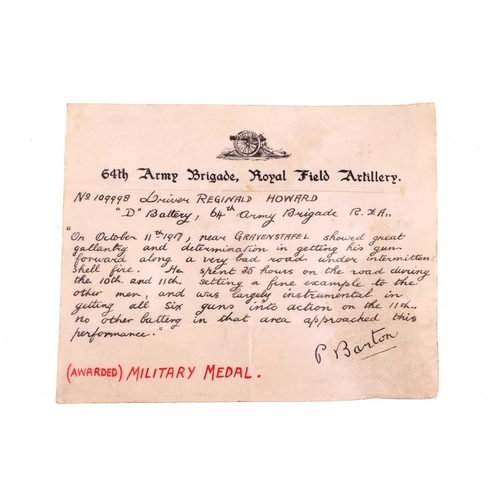 64th Army Brigade, Royal Field Artillery.
No 109998 Driver REGINALD HOWARD
"D" Battery, 64th Army Brigade R.F.A..
"On October 11th 1917, near GRAVENSTAFEL showed great
gallantry and determination in getting his gun
forward along a very bad road under intermittent
shell fire. He spent 25 hours on the road during
the 10th. and 11th. setting a fine example to the
other men, and was largely instrumental in
getting all six guns into action on the 11th..
no other battery in that area approached this
performance."
P Barton
(AWARDED) MILITARY MEDAL.